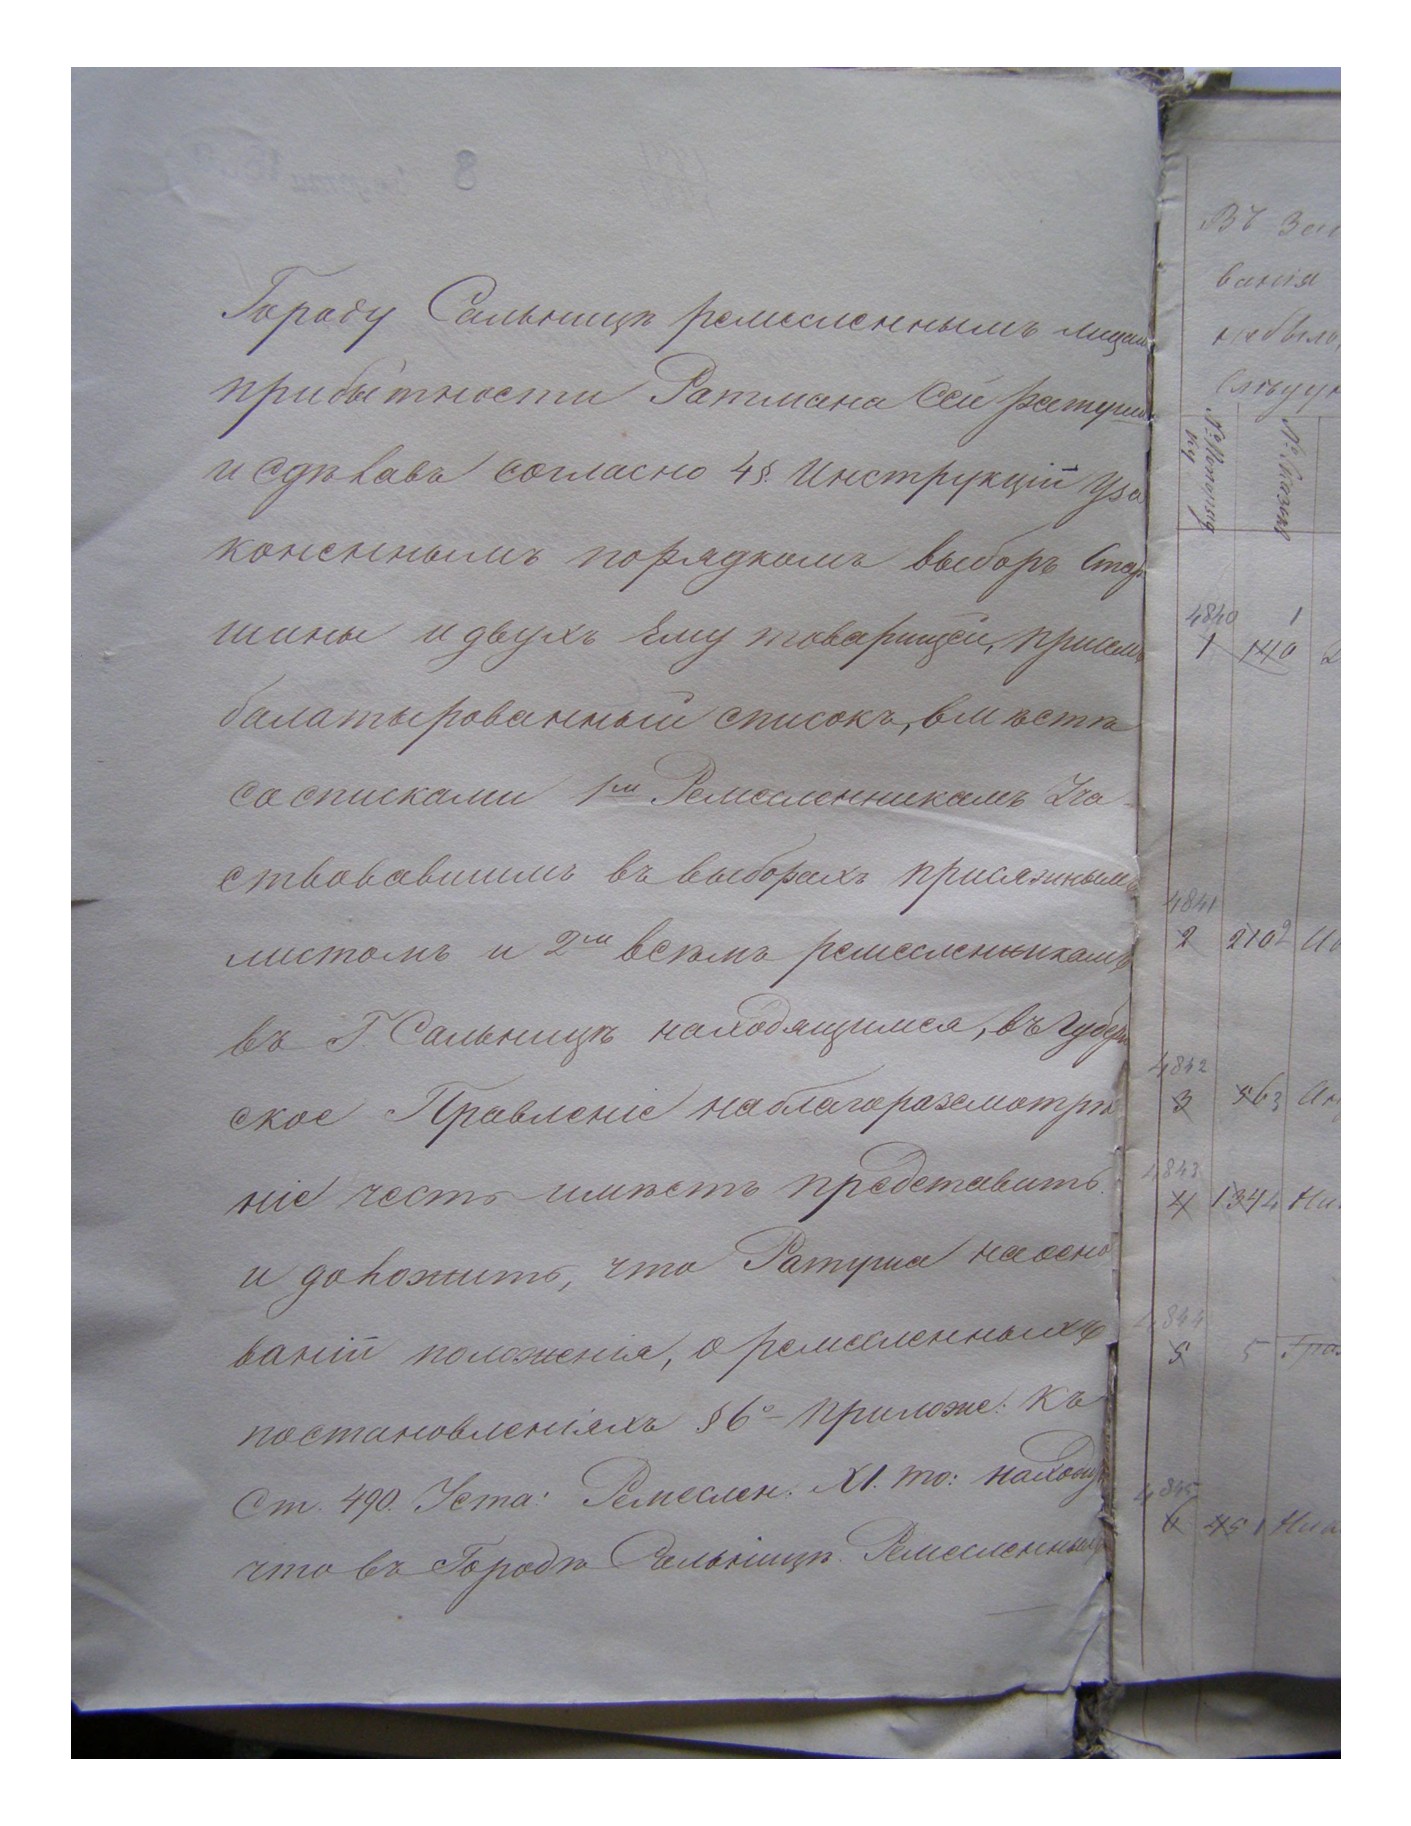 Городу Сальницѣ ремесленнымъ лицам
прибытности Ратмана Сей ратуши
и сдѣлавъ согласно 4§. Инструкціи Уза
коненнымъ порядкомъ выборъ Стар
шины и двухъ Ему товарищей,
балатырованный списокъ, вмѣстѣ
со списками 1м Ремесленникамъ Уча
ствовавшимъ въ выборахъ присяжнымъ
листомъ и 2м всѣмъ ремесленникамъ
въ Г. Сальницѣ находящимся, въ Губерн
ское Правленіе на благоразсмотрѣ
ніе честь имѣетъ представить
и доложить, что Ратуша на осно
ваніи положенія, о ремесленныхъ
постановленіяхъ §6º приложе: къ
Ст. 490. Уста: Ремеслен. XI. то: находя
что въ Городѣ Сальницѣ. Ремесленныхъ
Въ
ванія
небыло,
№
№
4840 1
1 140
4841
2 2102
4842
3 563
4843
4 1344
4844
5 5
4845
6 451